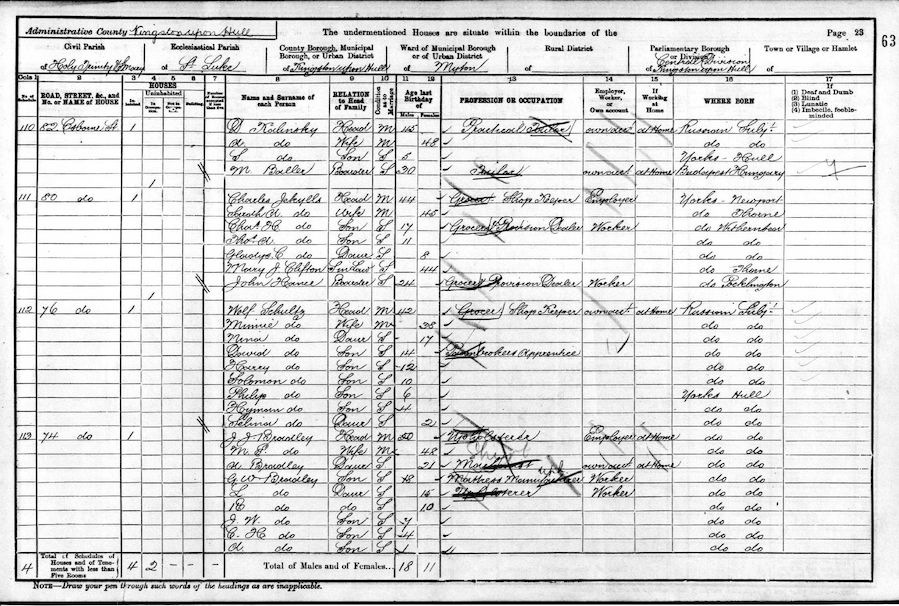 Administrative County Kingston upon Hull The undermentioned Houses are situate within the boundaries of the Page 23
63
Civil Parish Ecclesiastical Parish County Borough, Municipal Borough, or Urban District Ward of Municipal Borough or of Urban District Rural District Parliamentary Borough or Division Town or Village or Hamlet
of Holy Trinity & St Mary of St Luke of Kingston upon Hull of Myton of of Kingston upon Hull of
Cols 1 2 3 4 5 6 7 8 9 10 11 12 13 14 15 16 17
No. of Schedule ROAD, STREET, &c., and No. or NAME of HOUSE HOUSES Inhabited Uninhabited In Occupation Not in Occupation Building Name and Surname of each Person RELATION to Head of Family Condition as to Marriage Age last Birthday of Males Females PROFESSION OR OCCUPATION Employer, Worker, or Own account If Working at Home WHERE BORN If (1) Deaf and Dumb (2) Blind (3) Lunatic (4) Imbecile, feeble-minded
110 82 Osborne St 1 D Kalinsky Head M 45 Practical Tailor own acct at Home Russian Subjt
A do Wife M 48
S do Son S 5 Yorks - Hull
M Baller Boarder S 30 Tailor own acct at Home Budapest Hungary
1
111 80 do 1 Charles Jekylls Head M 44 Grocer Shop Keeper Employer Yorks - Newport
A do Wife M 45 do Thorne
Chas H. do Son S 17 Grocer Provision Dealer Worker do Withernsea
Thos A do Son S 11 do do
Gladys C do Daur S 8 do do
Mary J Clifton Sin Law S 44 do Thorne
John Hance Boarder S 24 Grocer Provision Dealer Worker do Pocklington
1
112 76 do 1 Wolf Schultz Head M 42 Grocer Shop Keeper own acct at Home Russian Subjt
Minnie do Wife M 38 do do
Nina do Daur S 17 do do
David do Son S 14 Pawnbrokers Apprentice do do
Harry do Son S 12 do do
Solomon do Son S 10 do do
Philip do Son S 6 Yorks Hull
Hyman do Son S 4 do do
Selina do Daur S 2 do do
113 74 do 1 J J Bradley Head M 50 Upholsterer Employer at Home do do
M. P. do Wife M 48 do do
A Bradley Daur S 21 own acct at Home do do
G W Bradley Son S 18 Mattress Manufacturer Worker do do
L do Daur S 15 Upholsterer Worker do do
E do do S 10 do do
J. W. do Son S 7 do do
C. H do Son S 4 do do
A do Son S 1 do do
4 Total of Schedules of Houses and of Tenements with less than Five Rooms 4 2 - - - Total of Males and of Females... 18 11
NOTE—Draw your pen through such words of the headings as are inapplicable.